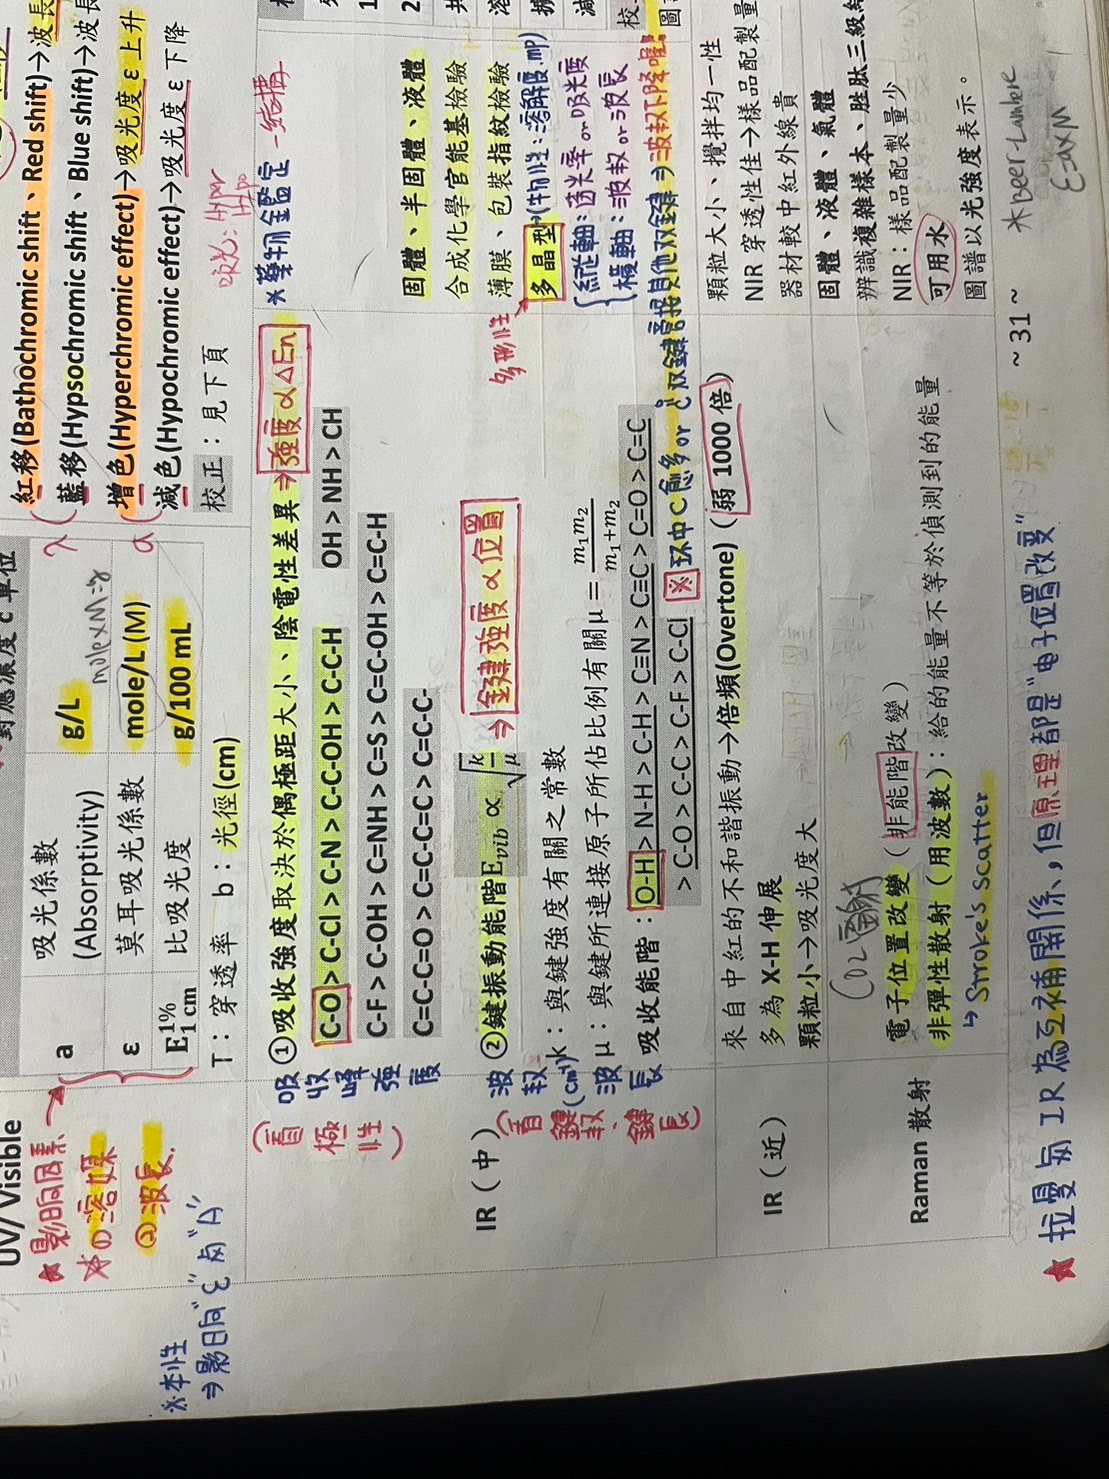 對應濃度 c 單位
UV/Visible
a
吸光係數
(Absorptivity)
g/L
ε
莫耳吸光係數
mole/L (M)
mole×M=g
E 1% 1 cm
比吸光度
g/100 mL
T：穿透率 b：光徑(cm)
紅移(Bathochromic shift、Red shift)→波長
藍移(Hypsochromic shift、Blue shift)→波長
增色(Hyperchromic effect)→吸光度 ε 上升
減色(Hypochromic effect)→吸光度 ε 下降
校正：見下頁
λ
a
吸光: Hyper
Hypo
★影响因素
☆①溶媒
②波長.
※本性
⇒影响"ε"与"A"
IR（中）
吸收峰強度
(看極性)
①吸收強度取決於偶極距大小、陰電性差異⇒強度 α ΔEn
C-O > C-Cl > C-N > C-C-OH > C-C-H OH > NH > CH
C-F > C-OH > C=NH > C=S > C=C-OH > C=C-H
C=C-C=O > C=C-C=C > C=C-C-
波数(cm⁻¹)波長
(看鍵数、鍵長)
②鍵振動能階E vib ∝ √k/μ ⇒鍵強度 α 位置
k：與鍵強度有關之常數
μ：與鍵所連接原子所佔比例有關μ = m1m2/m1+m2
吸收能階：O-H > N-H > C-H > C≡N > C≡C > C=O > C=C
> C-O > C-C > C-F > C-Cl
※環中C愈多 or C双鍵旁接其他双鍵⇒波数下降喔!
※藥物鑑定-結構
固體、半固體、液體
合成化學官能基檢驗
薄膜、包裝指紋檢驗
多晶型(物性:溶解度.mp)
多形性
縱軸:透光率or吸光度
橫軸:波数or波長
IR（近）
來自中紅的不和諧振動→倍頻(Overtone)（弱 1000 倍）
多為 X-H 伸展
顆粒小→吸光度大
顆粒大小、攪拌均一性
NIR 穿透性佳→樣品配製量
器材較中紅外線貴
Raman 散射
電子位置改變（非能階改變）
非彈性散射（用波數）：給的能量不等於偵測到的能量
↳Stroke's scatter
固體、液體、氣體
辨識複雜樣本、胜肽三級結
NIR：樣品配製量少
可用水
圖譜以光強度表示。
~ 31 ~
★拉曼与IR為互補關係,但原理都是"电子位置改变"
※Beer-Lambert
ε=a×M